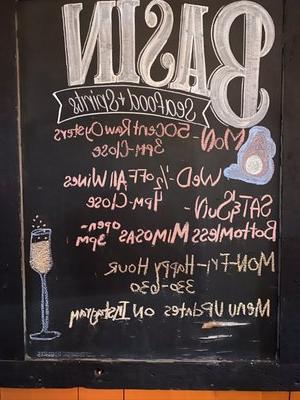 BASIN
Seafood + Spirits
MON - 50 Cent Raw Oysters
3pm-Close
WED - 1/2 OFF All Wines
4pm-Close
SAT & SUN -
Bottomless Mimosas open-
3pm
MON-Fri-Happy Hour
330-630
Menu Updates on Instagram